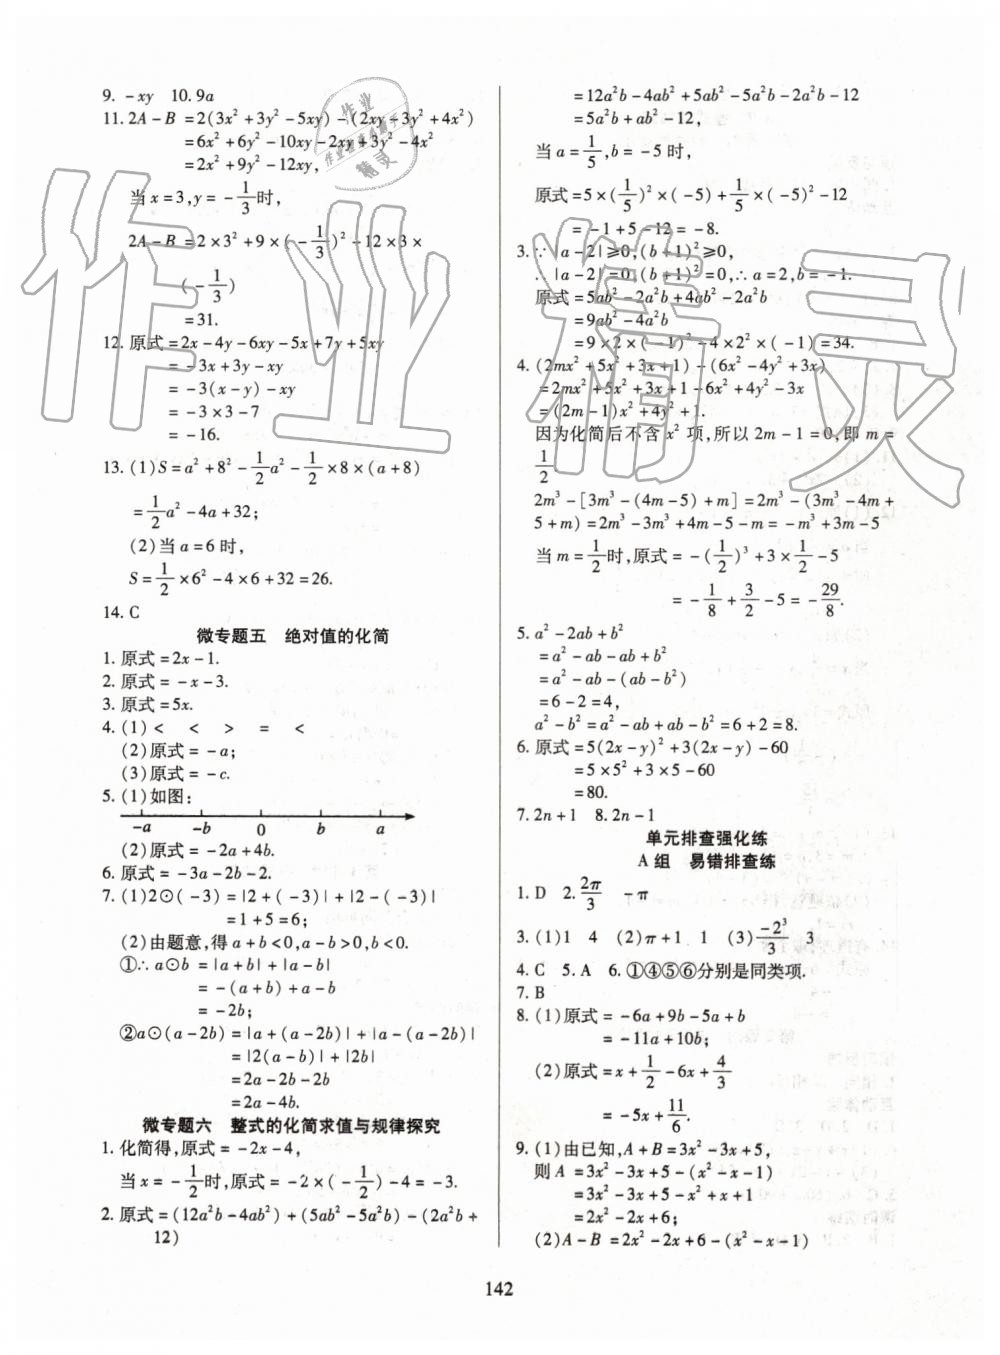 9. -xy  10. 9a
11. 2A-B = 2(3x²+3y²-5xy)-(2xy-3y²+4x²)
=6x²+6y²-10xy-2xy+3y²-4x²
=2x²+9y²-12xy,
当x=3,y=-1/3时,
2A-B=2×3²+9×(-1/3)²-12×3×
(-1/3)
=31.
12. 原式=2x-4y-6xy-5x+7y+5xy
= -3x+3y-xy
= -3(x-y)-xy
= -3×3-7
= -16.
13. (1)S=a²+8²-1/2a²-1/2×8×(a+8)
=1/2a²-4a+32;
(2)当a=6时,
S=1/2×6²-4×6+32=26.
14. C
微专题五  绝对值的化简
1. 原式=2x-1.
2. 原式= -x-3.
3. 原式=5x.
4. (1)<  <  >  =  <
(2)原式= -a;
(3)原式= -c.
5. (1)如图:
-a  -b  0  b  a
(2)原式= -2a+4b.
6. 原式= -3a-2b-2.
7. (1)2⊙(-3)=|2+(-3)|+|2-(-3)|
=1+5=6;
(2)由题意,得a+b<0,a-b>0,b<0.
①∴a⊙b = |a+b|+|a-b|
= -(a+b)+a-b
= -2b;
②a⊙(a-2b)=|a+(a-2b)|+|a-(a-2b)|
=|2(a-b)|+|2b|
=2a-2b-2b
=2a-4b.
微专题六  整式的化简求值与规律探究
1. 化简得,原式= -2x-4,
当x= -1/2时,原式= -2×(-1/2)-4= -3.
2. 原式=(12a²b-4ab²)+(5ab²-5a²b)-(2a²b+
12)
=12a²b-4ab²+5ab²-5a²b-2a²b-12
=5a²b+ab²-12,
当a=1/5,b= -5时,
原式=5×(1/5)²×(-5)+1/5×(-5)²-12
= -1+5-12= -8.
3. ∵|a-2|≥0,(b+1)²≥0,
∴|a-2|=0,(b+1)²=0,∴a=2,b= -1.
原式=5ab²-2a²b+4ab²-2a²b
=9ab²-4a²b
=9×2×(-1)²-4×2²×(-1)=34.
4. (2mx²+5x²+3x+1)-(6x²-4y²+3x)
=2mx²+5x²+3x+1-6x²+4y²-3x
=(2m-1)x²+4y²+1.
因为化简后不含x²项,所以2m-1=0,即m=
1/2
2m³-[3m³-(4m-5)+m]=2m³-(3m³-4m+
5+m)=2m³-3m³+4m-5-m= -m³+3m-5
当m=1/2时,原式= -(1/2)³+3×1/2-5
= -1/8+3/2-5= -29/8.
5. a²-2ab+b²
=a²-ab-ab+b²
=a²-ab-(ab-b²)
=6-2=4,
a²-b²=a²-ab+ab-b²=6+2=8.
6. 原式=5(2x-y)²+3(2x-y)-60
=5×5²+3×5-60
=80.
7. 2n+1  8. 2n-1
单元排查强化练
A组  易错排查练
1. D  2. 2π/3  -π
3. (1)1  4  (2)π+1  1  (3)-2³/3  3
4. C  5. A  6. ①④⑤⑥分别是同类项.
7. B
8. (1)原式= -6a+9b-5a+b
= -11a+10b;
(2)原式=x+1/2-6x+4/3
= -5x+11/6.
9. (1)由已知,A+B=3x²-3x+5,
则A=3x²-3x+5-(x²-x-1)
=3x²-3x+5-x²+x+1
=2x²-2x+6;
(2)A-B=2x²-2x+6-(x²-x-1)
142
作业精灵